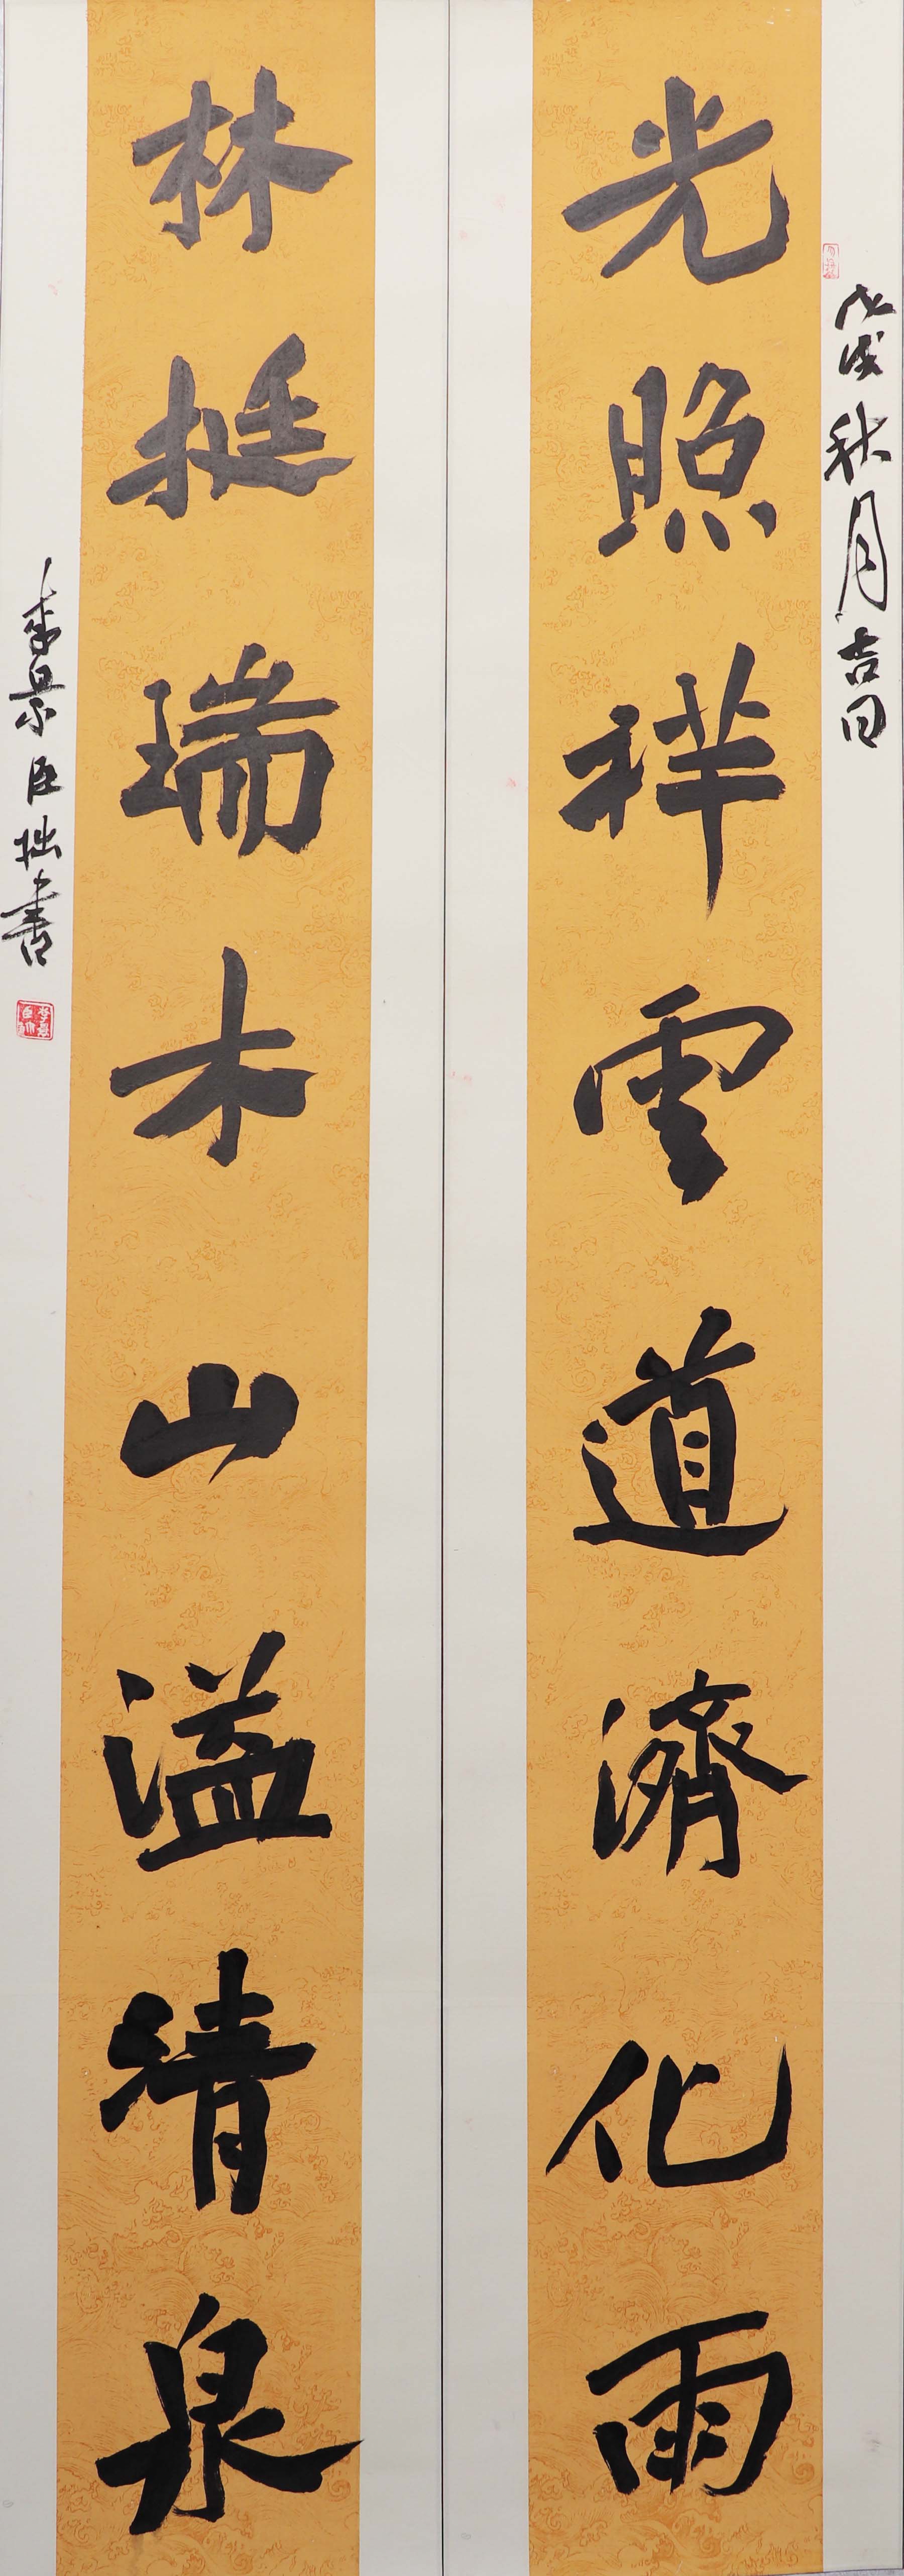 戊戌秋月吉日
光照祥雲道濟化雨
林挺瑞木山溢清泉
李景臣拙書